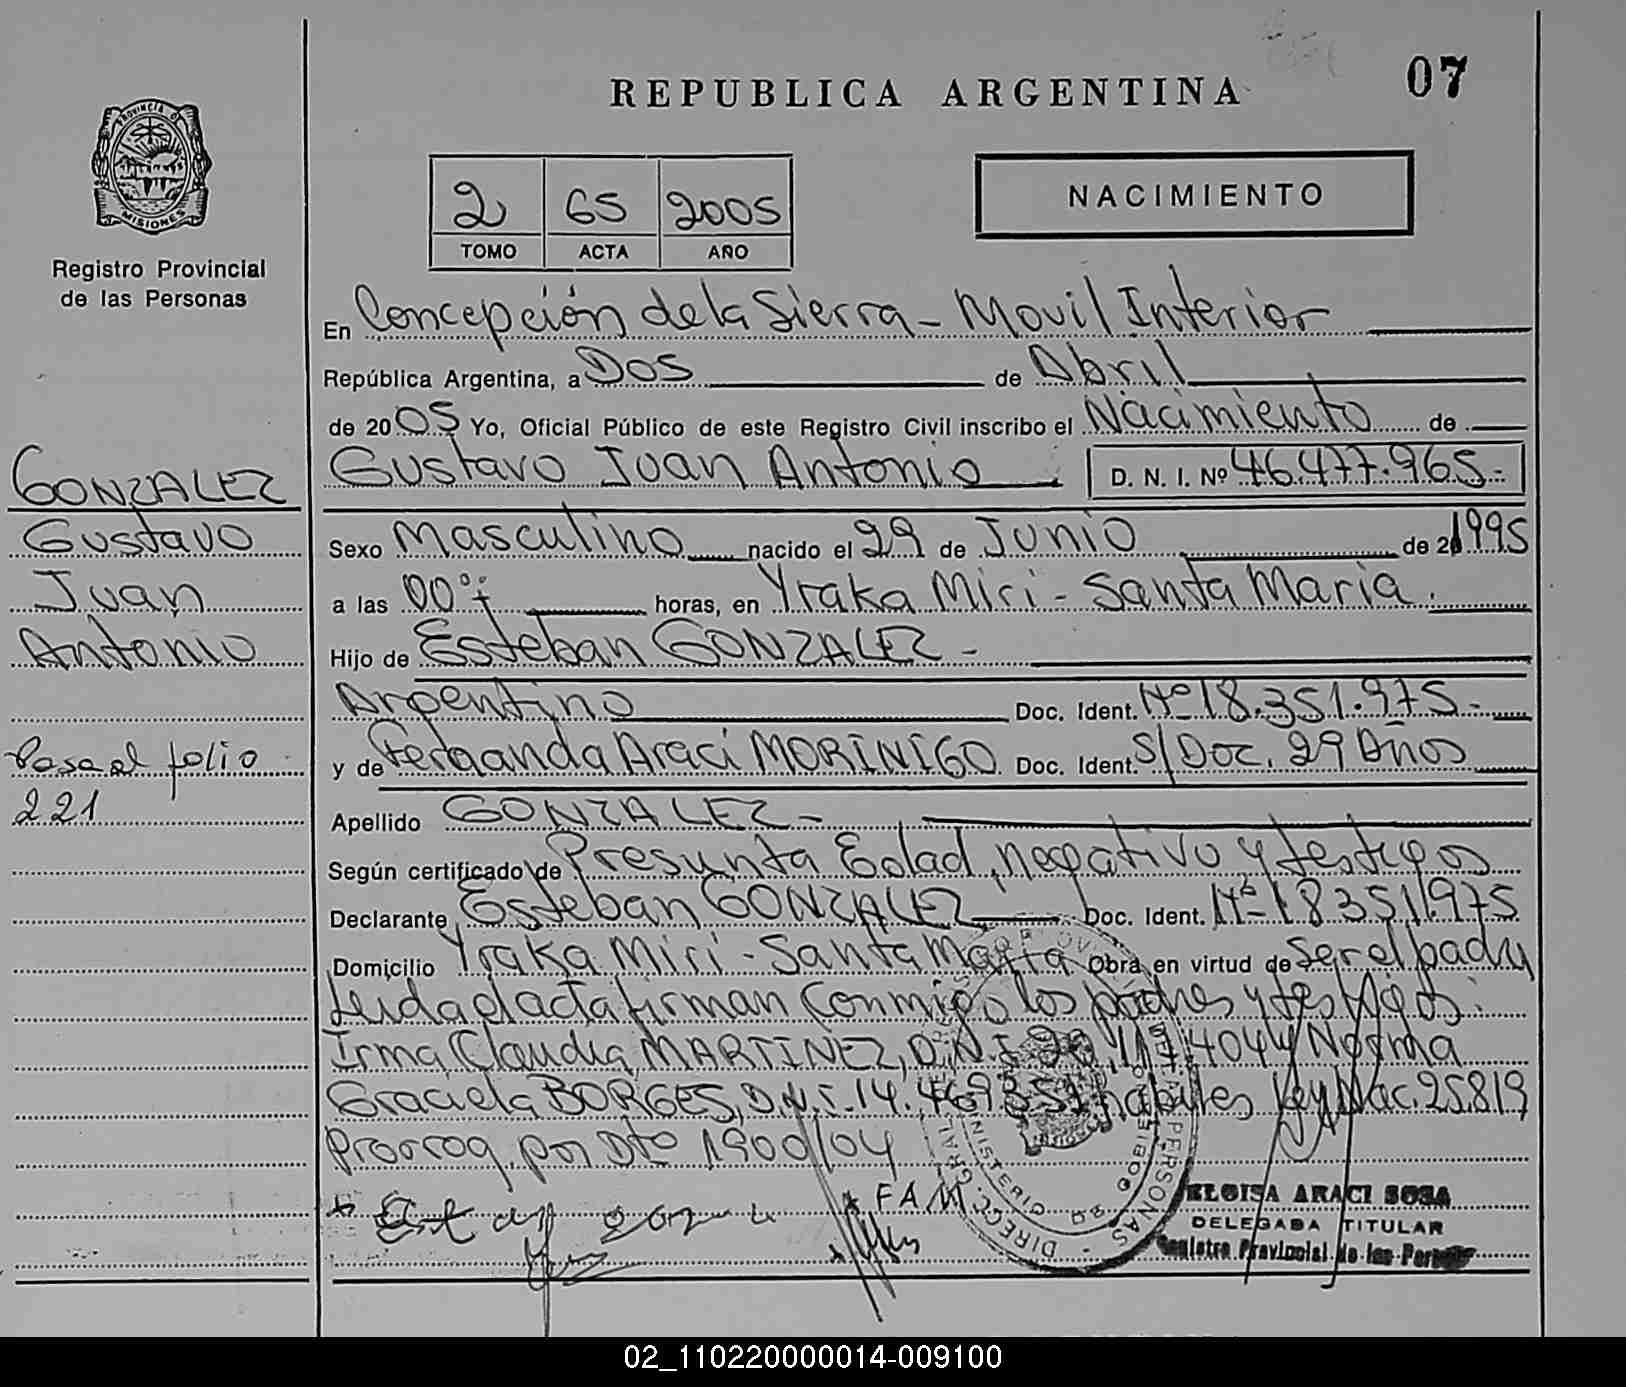 REPUBLICA ARGENTINA
07
PROVINCIA D
MISIONES
Registro Provincial
de las Personas
2 65 2005
TOMO ACTA AÑO
NACIMIENTO
En Concepción de la Sierra - Movil Interior
República Argentina, a Dos de Abril
de 2005 Yo, Oficial Público de este Registro Civil inscribo el Nacimiento de
Gustavo Juan Antonio D. N. I. Nº 46.477.965.-
Sexo Masculino nacido el 29 de Junio de 1995
a las 00 horas, en Yraka Miri - Santa Maria.
Hijo de Esteban GONZALEZ -
Argentino Doc. Ident. Nº 18.351.975.-
y de Fernanda Araci MORINIGO Doc. Ident. S/Doc. 29 Años
Apellido GONZALEZ -
Según certificado de Presunta Edad, negativo y testigos
Declarante Esteban GONZALEZ Doc. Ident. Nº 18351.975
Domicilio Yraka Miri - Santa Maria Obra en virtud de ser el padre
Leida el acta firman conmigo los padres y testigos:
Irma Claudia MARTINEZ, D.N.I. Norma
Graciela BORGES, D.N.I. 14.469. habiles Ley Nac. 25819
Prorrog. por Dto 1900/04
FAM
ELOISA ARACI SOSA
DELEGADA TITULAR
Registro Provincial de las Personas
GONZALEZ
Gustavo
Juan
Antonio
Pasa al folio
221
02_110220000014-009100